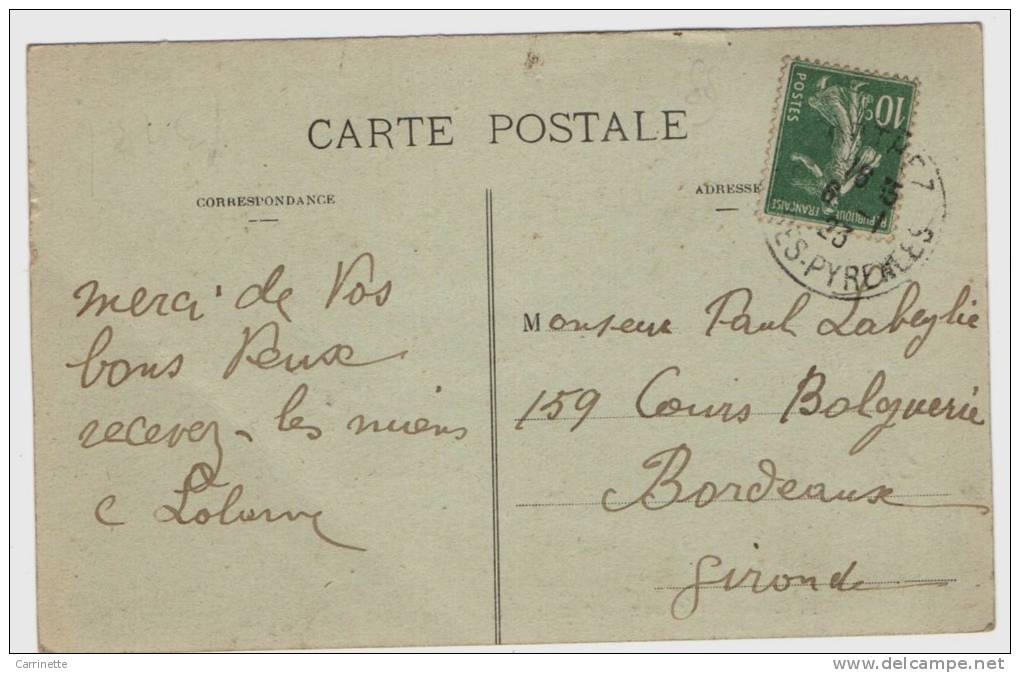 CARTE POSTALE
CORRESPONDANCE
merci de Vos
bons Veux
recevez les miens
C
ADRESSE
10c
POSTES
REPUBLIQUE FRANÇAISE
16 15
6
23
ES-PYRENEES
Monsieur Paul Labeylie
159 Cours Balguerie
Bordeaux
Gironde
Carrinette
www.delcampe.net